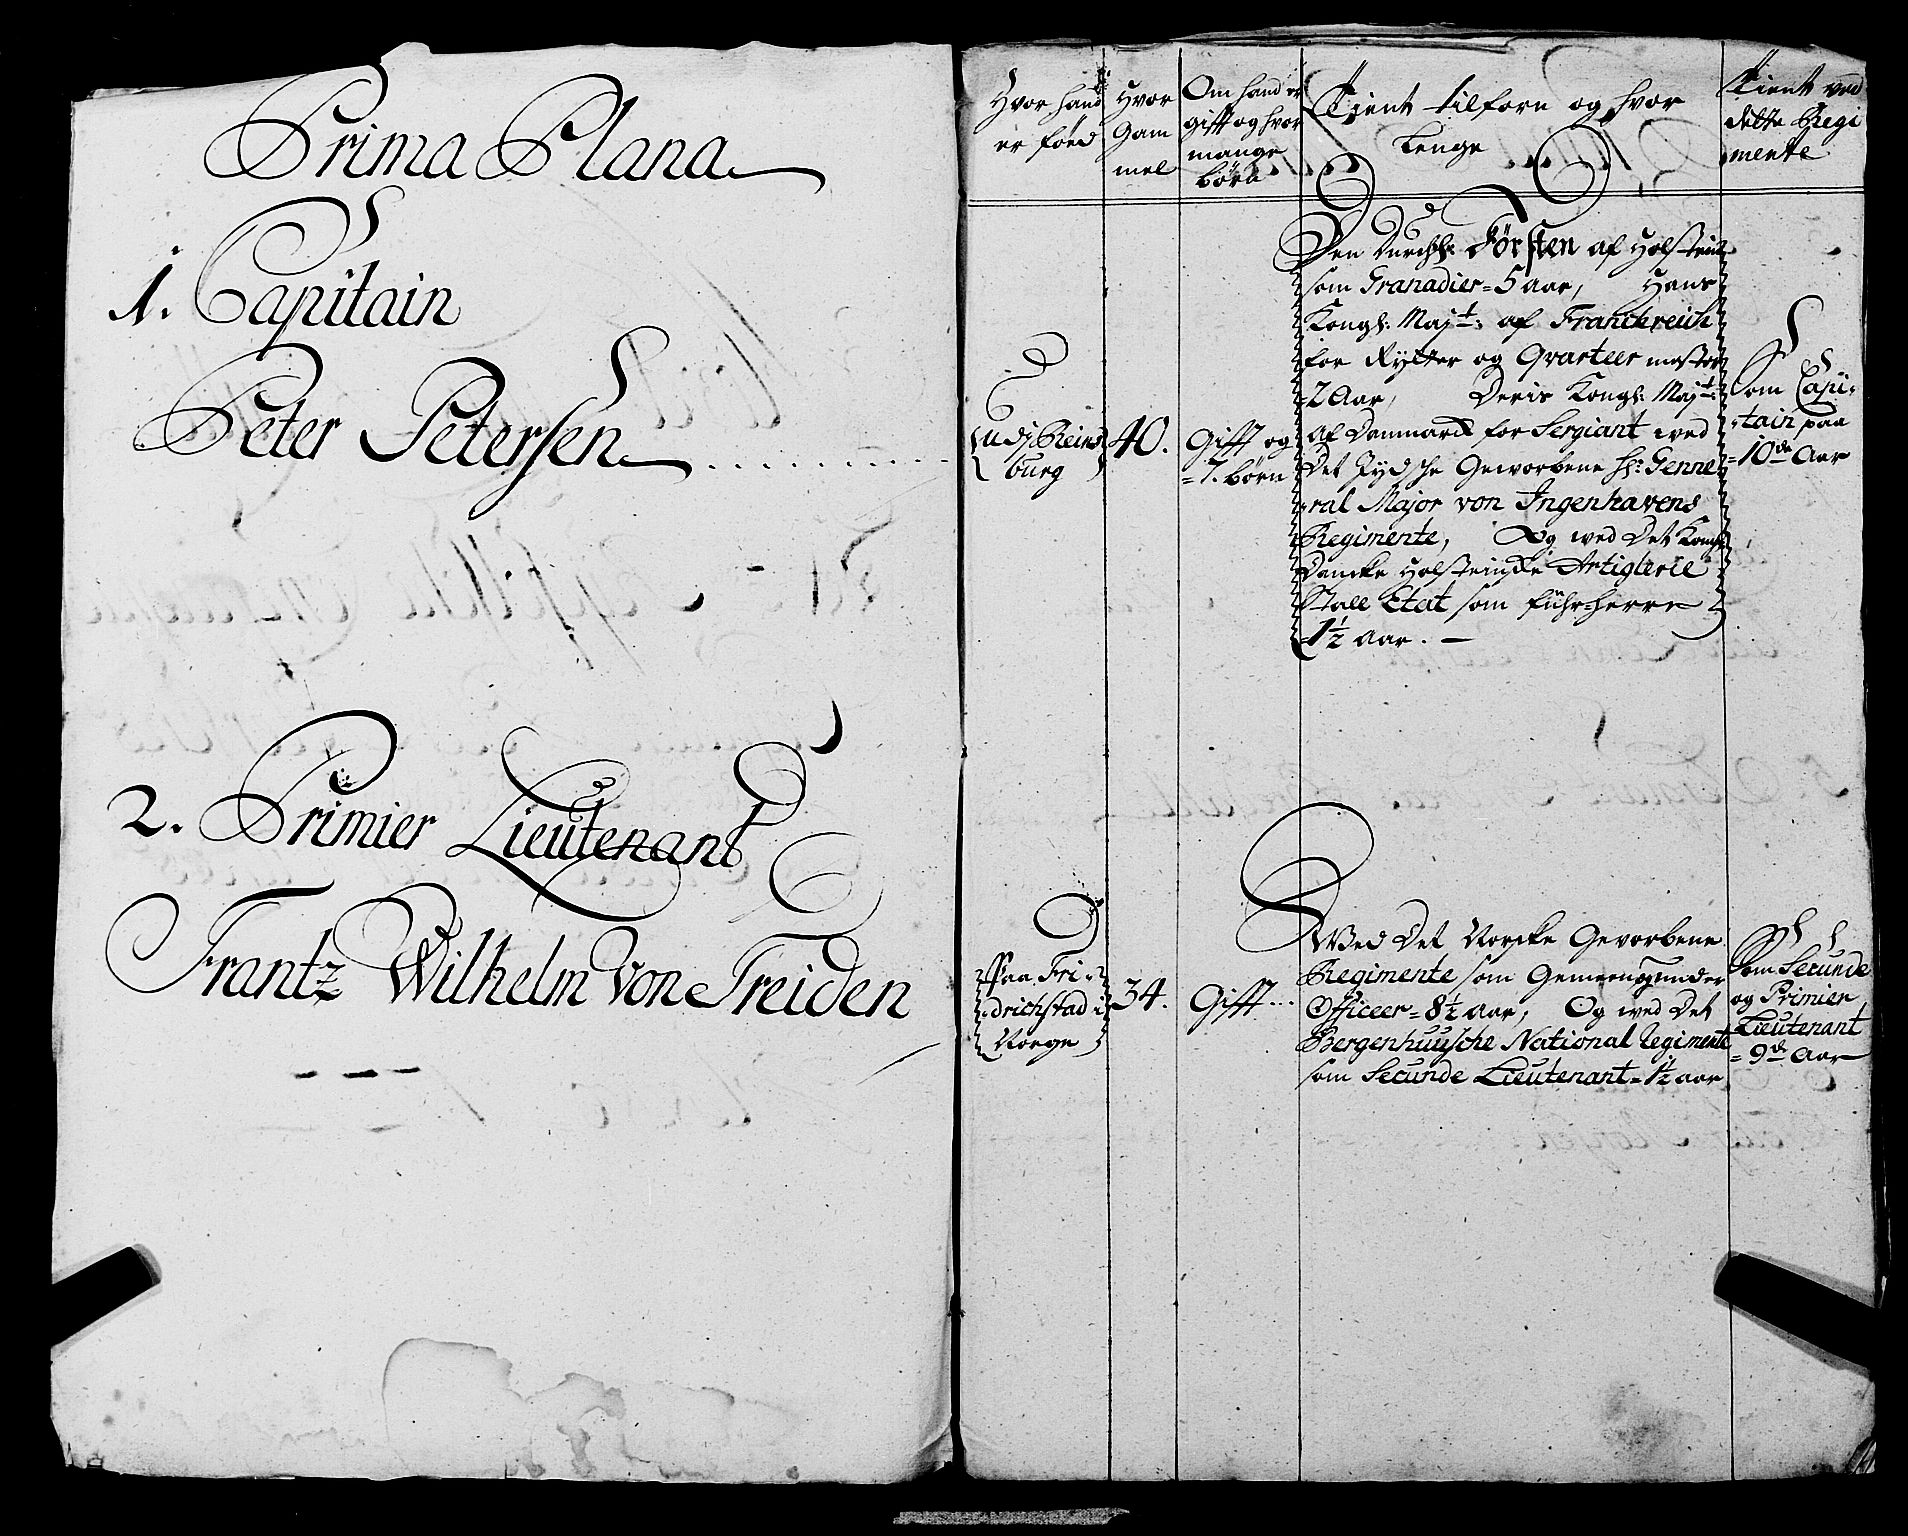 Prima Plana
1. Capitain
Peter Petersen
2. Primier Lieutenant
Frantz Wilhelm Von Treiden
Hvor hand
er föed
Hvor
Gam
mel
Om hand er
gifft og hvor
mange
börn
Tient tilforn og hvor
lenge
Tient ved
dette Regi
mente
Udj Reins
burg
40.
Gifft og
=7. börn
Den Durchl: Försten af Holstein
som Granadier = 5 aar, Hans
Kongl: Majt: af Franckreich
for Rytter og Qvarteer mester
2 Aar, Deris Kongl: Majt:
af Danmarck for Sergiant wed
Det Jydsche Geworbene Hr: Genne
ral Major von Ingenhavens
Regimente, Og wed Det Kongl:
Dancke Holsteinske Artiglerie
Stall Etat som führherre
1½ Aar.
Som Capi-
tain paa
=10de Aar
Paa Fri-
drichstad i
Norge
34.
Gifft...
Wed Det Norcke Gevorbene
Regimente som Gemeen og under
Officeer = 8½ Aar, Og wed Det
Bergenhuusche National Regimente
som Secunde Lieutenant = 1½ aar
Som Secunde
og Primier
Lieutenant
=9de Aar